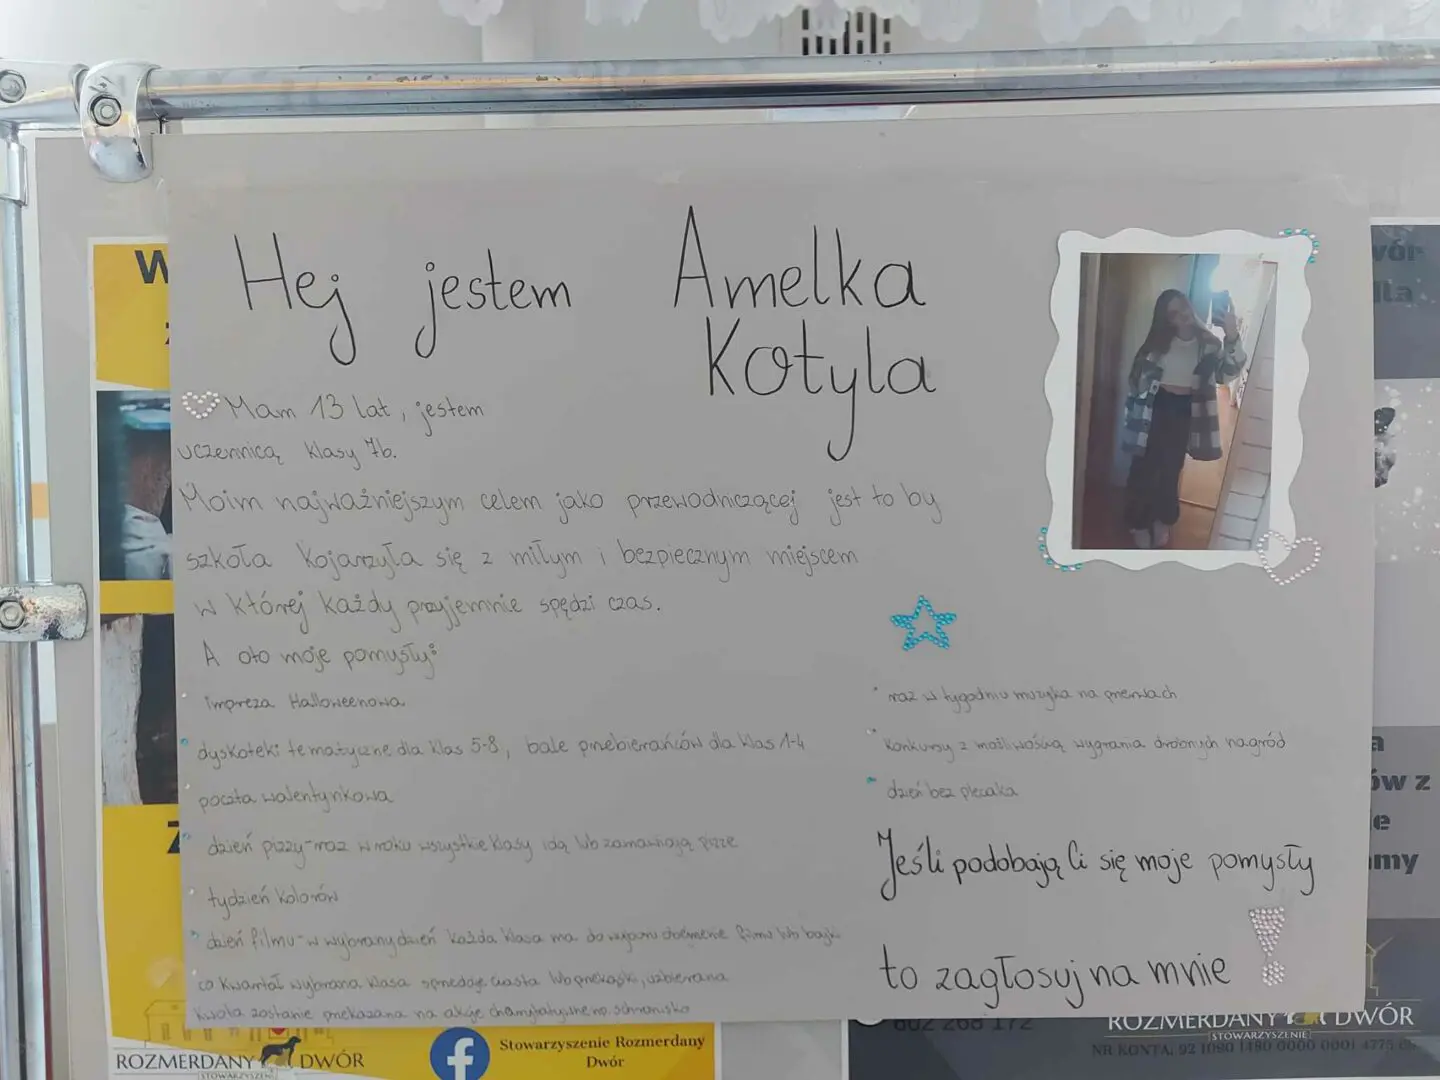 Hej jestem Amelka
Kotyla
Mam 13 lat, jestem
uczennicą klasy 7b.
Moim najważniejszym celem jako przewodniczącej jest to by
szkoła kojarzyła się z miłym i bezpiecznym miejscem
w której każdy przyjemnie spędzi czas.
A oto moje pomysły:
impreza Halloweenowa
dyskoteki tematyczne dla klas 5-8, bale przebierańców dla klas 1-4
poczta walentynkowa
dzień pizzy-raz w roku wszystkie klasy idą lub zamawiają pizze
tydzień kolorów
dzień filmu-w wybrany dzień każda klasa ma do wyboru obejrzenie filmu lub bajki
co kwartał wybrana klasa sprzedaje ciasta lub przekąski, uzbierana
kwota zostanie przekazana na akcje charytatywne np. schronisko
raz w tygodniu muzyka na przerwach
konkursy z możliwością wygrania drobnych nagród
dzień bez plecaka
Jeśli podobają Ci się moje pomysły
to zagłosuj na mnie!
W
Z
ROZMERDANY DWÓR
STOWARZYSZENIE
Stowarzyszenie Rozmerdany
Dwór
wór
dla
a
ów z
e
my
602 268 172
ROZMERDANY DWÓR
STOWARZYSZENIE
NR KONTA. 92 1090 1480 0000 0001 4775